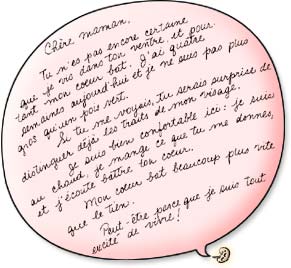 Chère maman,
Tu n'es pas encore certaine
que je vis dans ton ventre et pour-
tant mon cœur bat. J'ai quatre
semaines aujourd'hui et je ne suis pas plus
gros qu'un pois vert.
Si tu me voyais, tu serais surprise de
distinguer déjà les traits de mon visage.
Je suis bien confortable ici : je suis
au chaud, je mange ce que tu me donnes,
et j'écoute battre ton cœur.
Mon cœur bat beaucoup plus vite
que le tien.
Peut-être parce que je suis tout
excité de vivre !